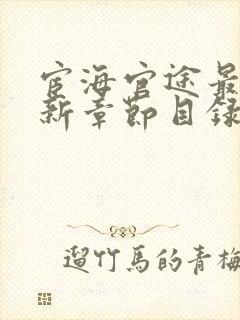 宦海官途最
新章節目錄
遛竹馬的青梅